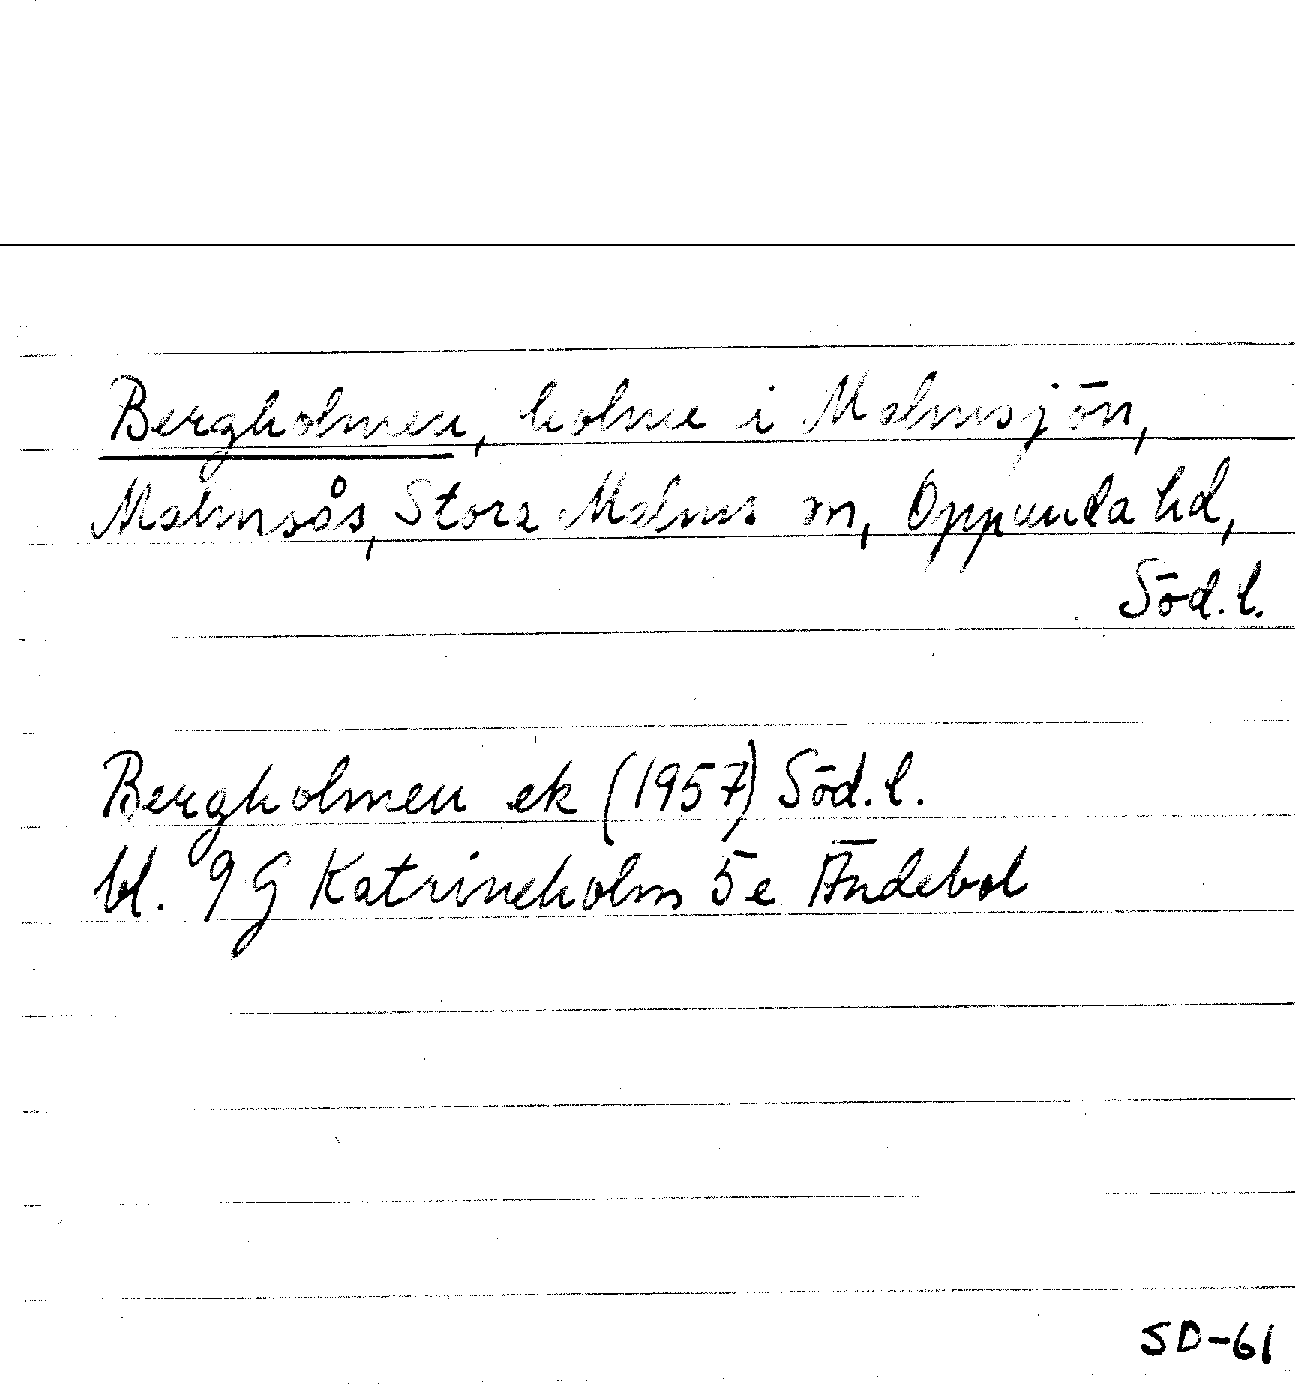 Bergholmen, holme i Malmsjön,
Malmsås, Stora Malms sn, Oppunda hd,
Söd. l.
Bergholmen ek (1957) Söd. l.
bl. 9 G Katrineholm 5 e Ändebol
SD-61